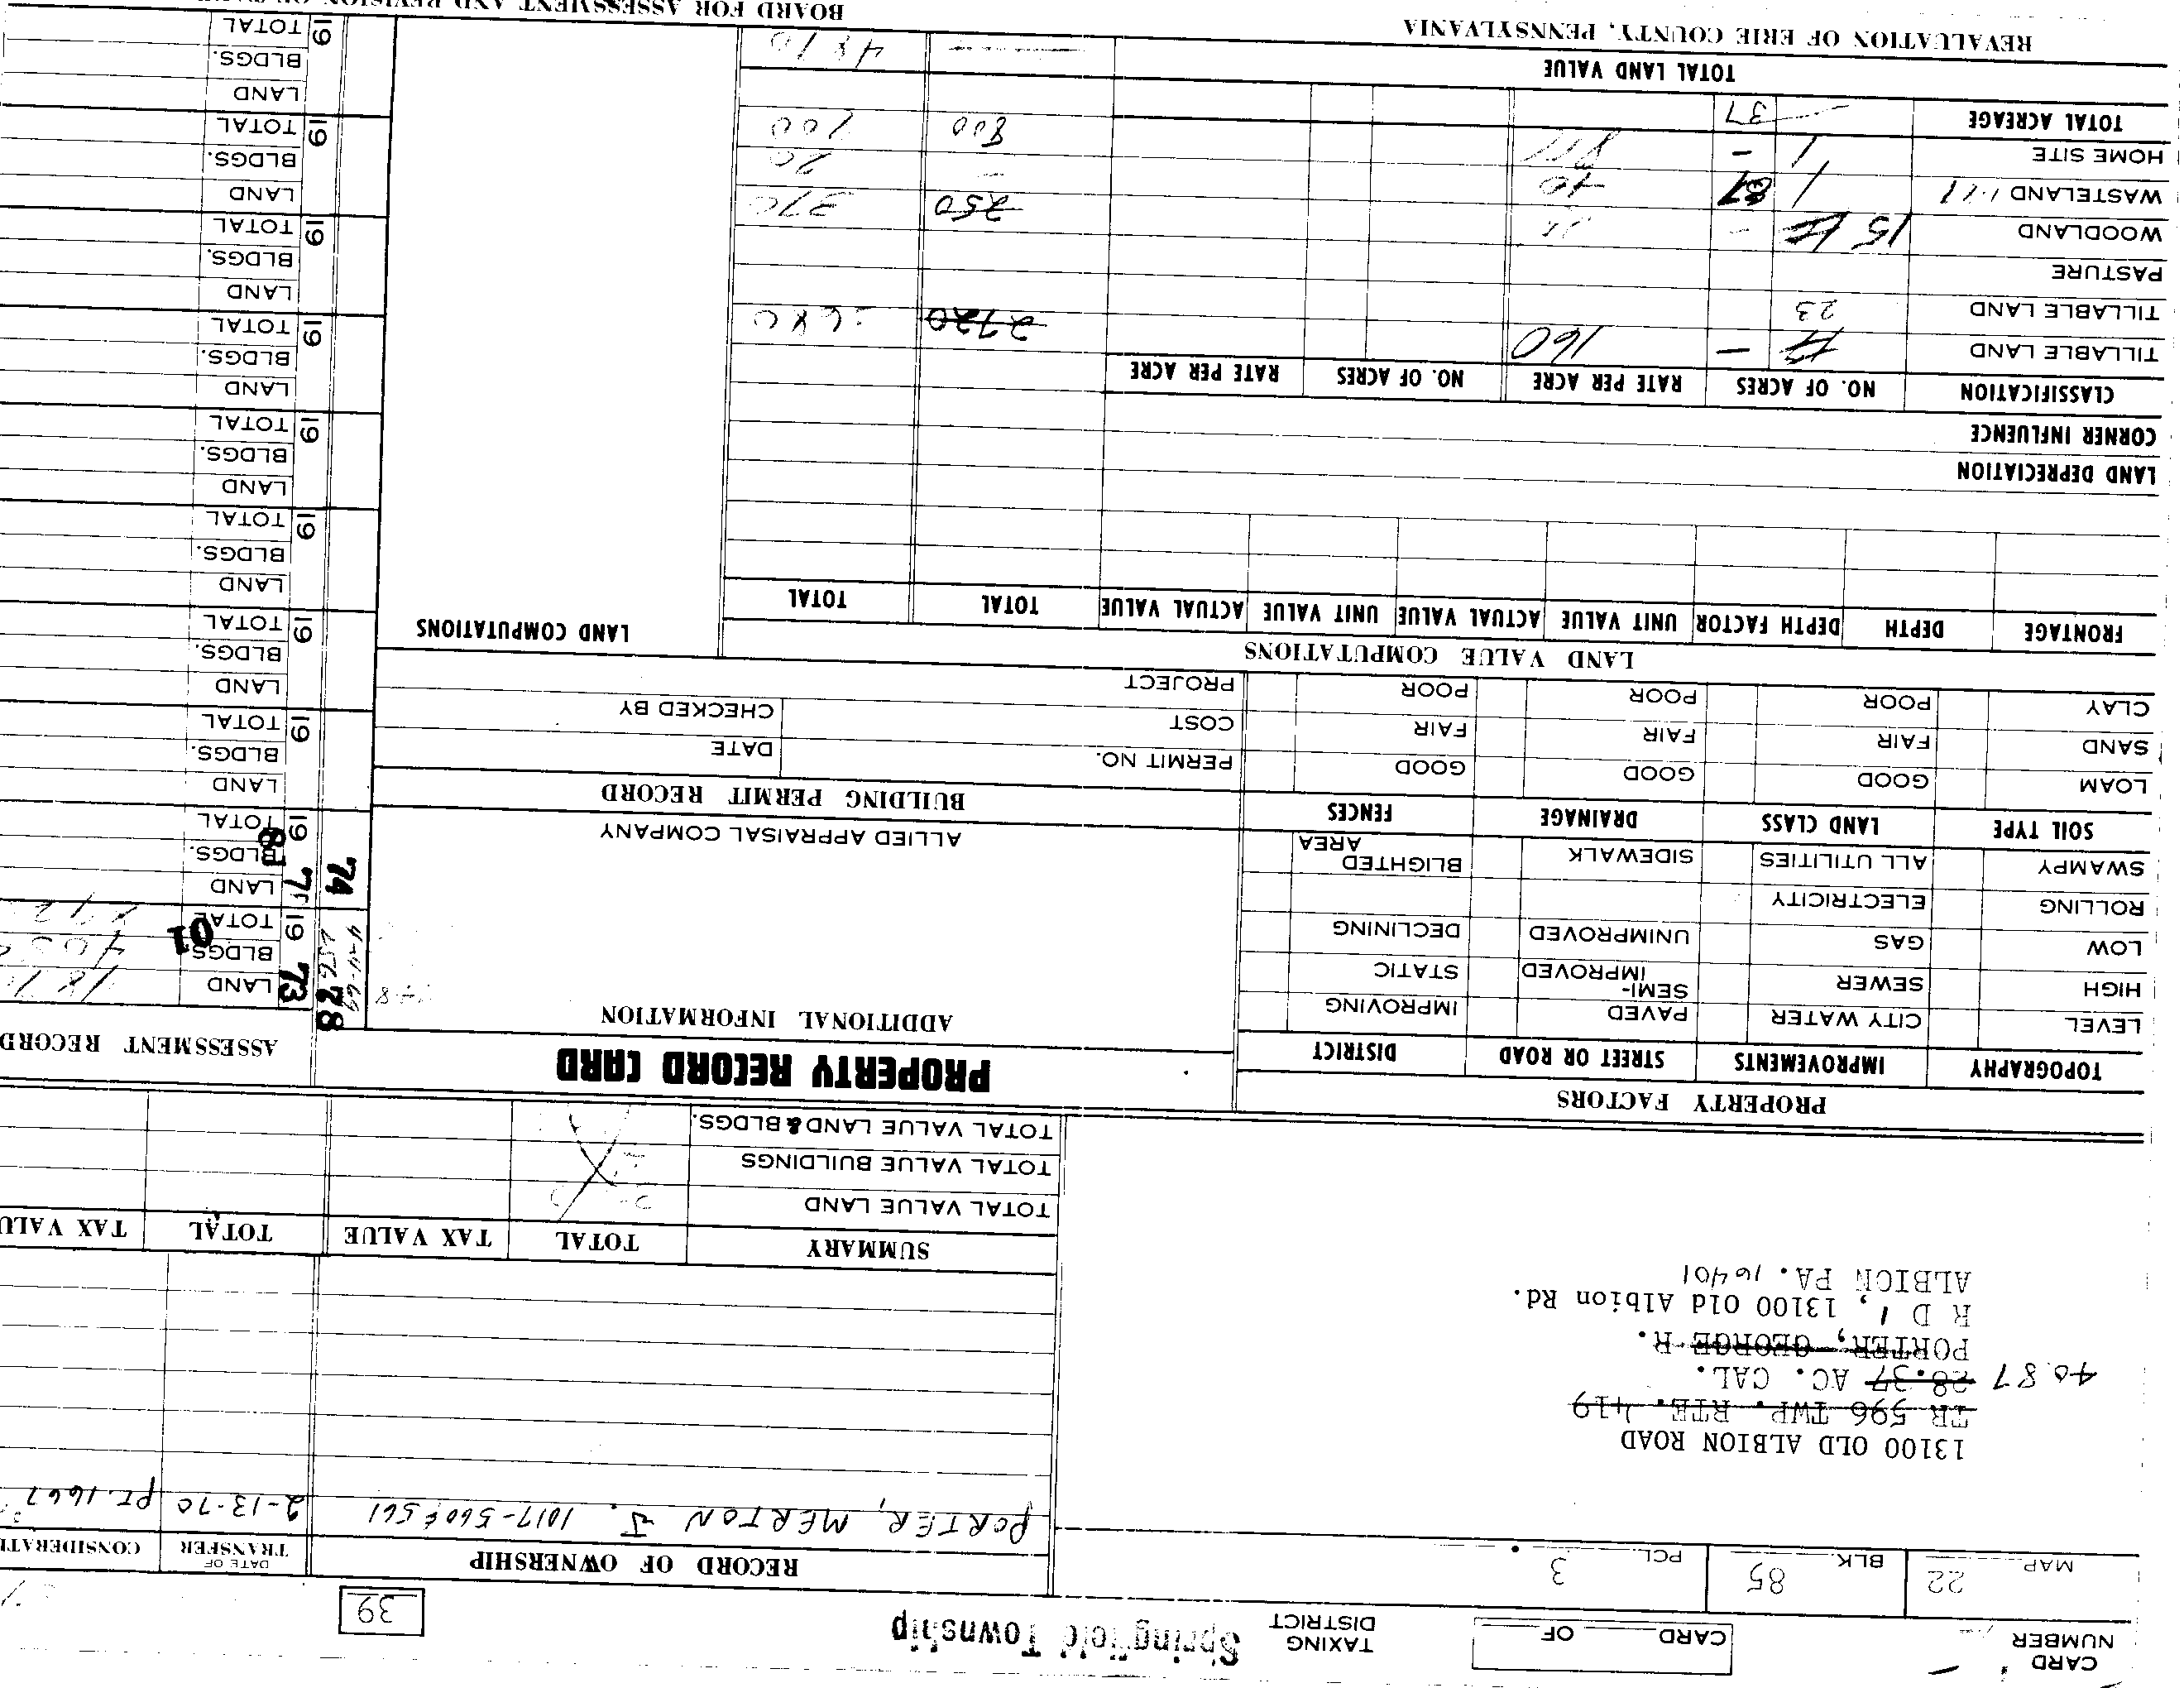 CARD NUMBER
CARD OF
TAXING DISTRICT Springfield Township
39
MAP 22 BLK. 85 PCL. 3
RECORD OF OWNERSHIP
DATE OF TRANSFER
CONSIDERATI
PORTER, MERTON J. 1017-560 & 561 2-13-70 pt. 1667
13100 OLD ALBION ROAD
TR 596 TWP. RTE. 419
40.87 28.37 AC. CAL.
PORTER, GEORGE R.
R D 1, 13100 Old Albion Rd.
ALBION PA. 16401
SUMMARY TOTAL TAX VALUE TOTAL TAX VALU
TOTAL VALUE LAND
TOTAL VALUE BUILDINGS
TOTAL VALUE LAND & BLDGS.
PROPERTY FACTORS
TOPOGRAPHY IMPROVEMENTS STREET OR ROAD DISTRICT
LEVEL CITY WATER PAVED IMPROVING
HIGH SEWER SEMI-IMPROVED STATIC
LOW GAS UNIMPROVED DECLINING
ROLLING ELECTRICITY
SWAMPY ALL UTILITIES SIDEWALK BLIGHTED AREA
SOIL TYPE LAND CLASS DRAINAGE FENCES
LOAM GOOD GOOD GOOD
SAND FAIR FAIR FAIR
CLAY POOR POOR POOR
PROPERTY RECORD CARD
ADDITIONAL INFORMATION
ALLIED APPRAISAL COMPANY
BUILDING PERMIT RECORD
PERMIT NO. DATE
COST CHECKED BY
PROJECT
ASSESSMENT RECORD
78
73
19 LAND
BLDGS.
TOTAL
01
74
19 LAND
BLDGS.
TOTAL
81
19 LAND
BLDGS.
TOTAL
19 LAND
BLDGS.
TOTAL
19 LAND
BLDGS.
TOTAL
19 LAND
BLDGS.
TOTAL
19 LAND
BLDGS.
TOTAL
19 LAND
BLDGS.
TOTAL
19 LAND
BLDGS.
TOTAL
19 LAND
BLDGS.
TOTAL
LAND VALUE COMPUTATIONS
LAND COMPUTATIONS
FRONTAGE DEPTH DEPTH FACTOR UNIT VALUE ACTUAL VALUE UNIT VALUE ACTUAL VALUE TOTAL TOTAL
LAND DEPRECIATION
CORNER INFLUENCE
CLASSIFICATION NO. OF ACRES RATE PER ACRE NO. OF ACRES RATE PER ACRE
TILLABLE LAND 17 - 160 2720 3680
TILLABLE LAND 23
PASTURE
WOODLAND 15 - 250 370
WASTELAND 1 87 40 20
HOME SITE 1 - 800 700
TOTAL ACREAGE 37
TOTAL LAND VALUE 4810
REVALUATION OF ERIE COUNTY, PENNSYLVANIA
BOARD FOR ASSESSMENT AND REVISION OF